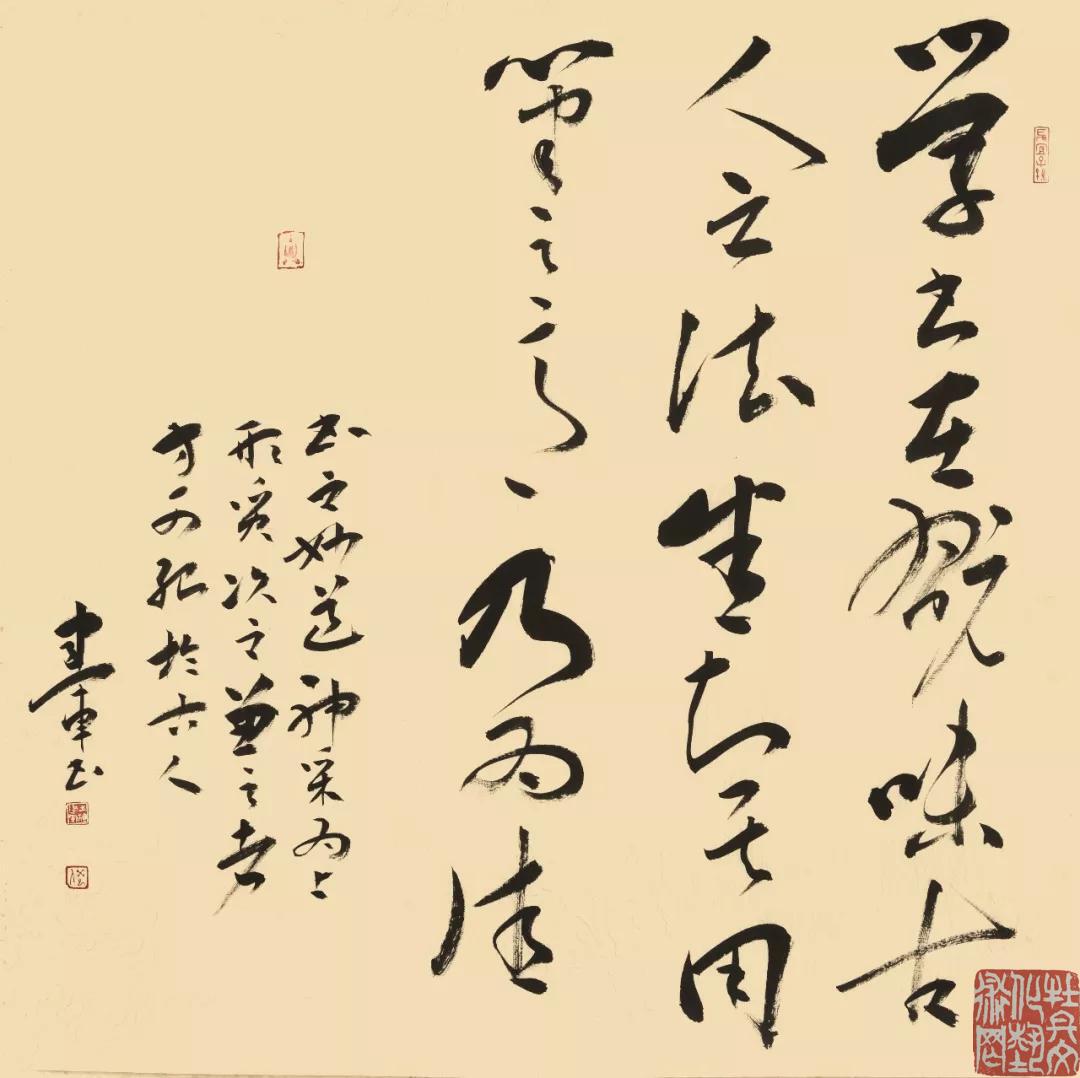 學书在翫味古
人之法悉知其用
笔之意乃为佳
书之妙道神采为上
形质次之兼之者
方可绍於古人
建军书